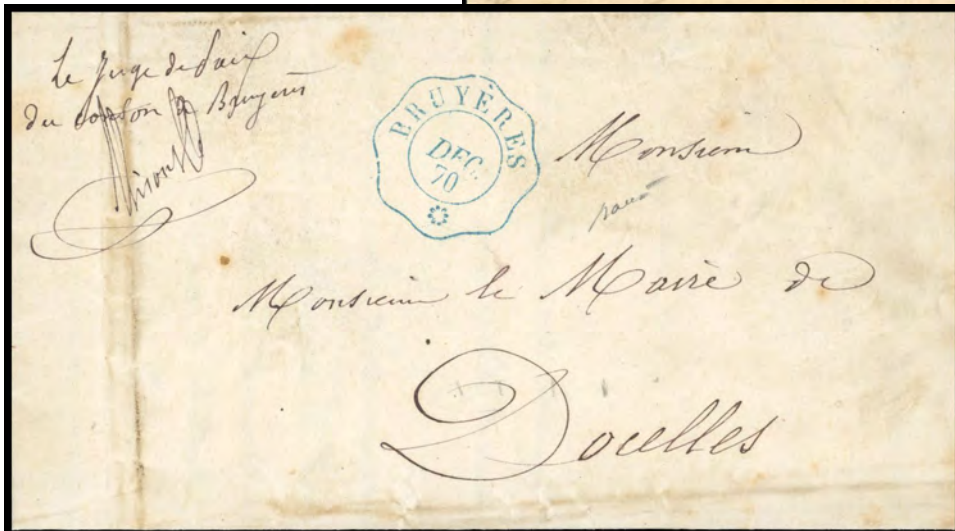 Le Juge de Paix
du Canton de Bruyères
BRUYÈRES
DEC.
70
Monsieur
Monsieur le Maire de
Docelles